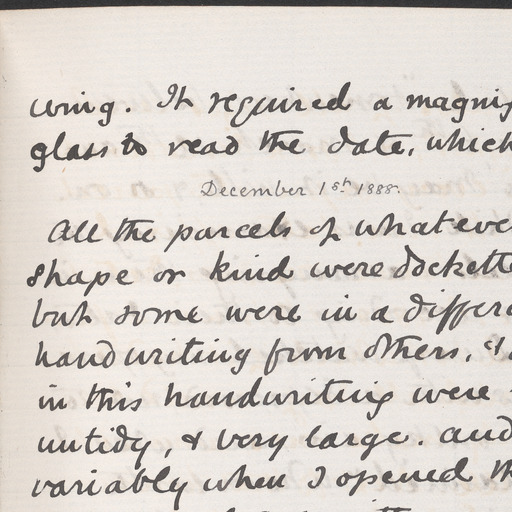 wing. It required a magnif
glass to read the date, which
December 1st 1888.
All the parcels of whateve
shape or kind were dockette
but some were in a differe
handwriting from others, &
in this handwriting were
untidy, & very large. and
variably when I opened th